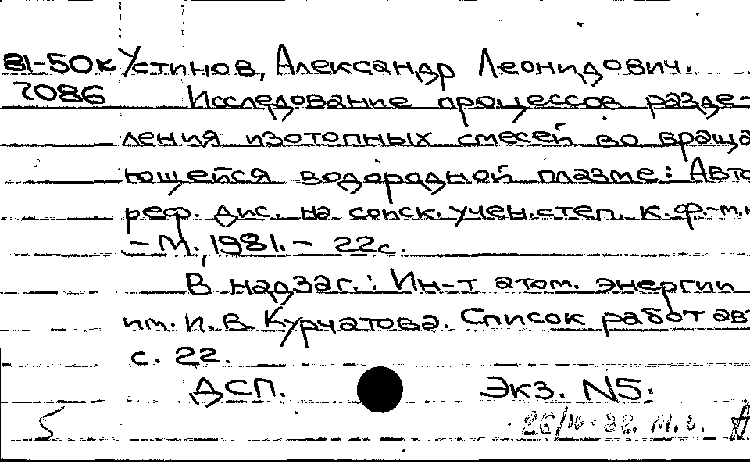 81-50к Устинов, Александр Леонидович.
7086 Исследование процессов разде-
ления изотопных смесей во враща
ющейся водородной плазме: Авто
реф. дис. на соиск. учен. степ. к. ф.-м.н
- М., 1981. - 22с.
В надзаг.: Ин-т атом. энергии
им. И. В. Курчатова. Список работ ав
с. 22.
ДСП. Экз. N5.
5